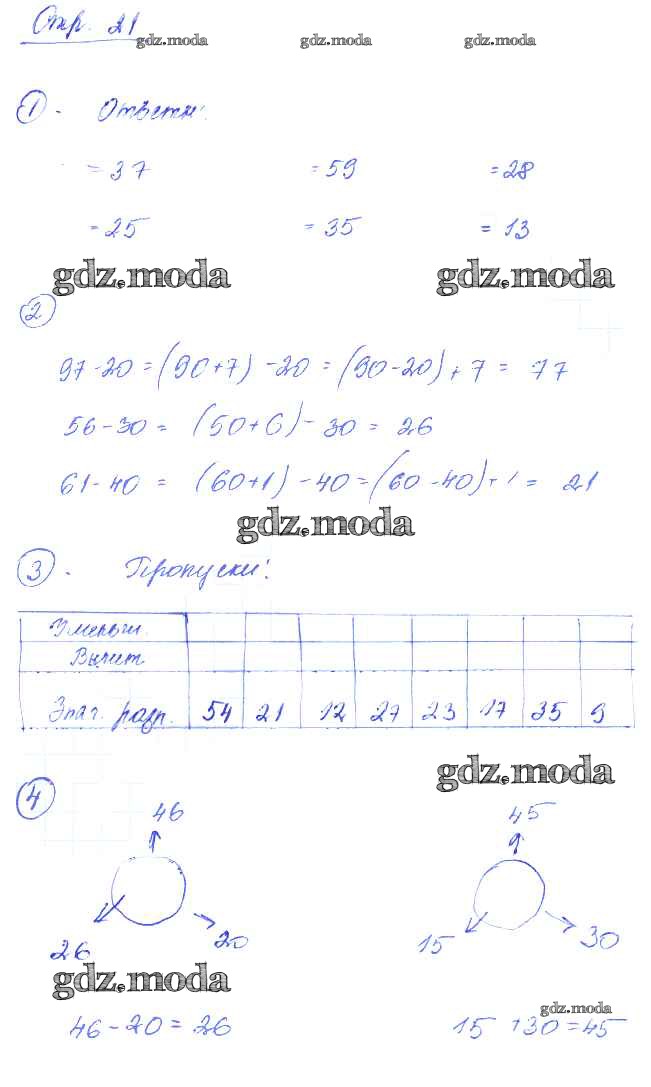 Стр. 21
gdz.moda gdz.moda gdz.moda
1. Ответы:
= 37 = 59 = 28
= 25 = 35 = 13
gdz.moda gdz.moda
2
97-20 = (90+7) - 20 = (90-20) + 7 = 77
56-30 = (50+6) - 30 = 26
61-40 = (60+1) - 40 = (60-40) + 1 = 21
gdz.moda
3. Пропуски:
Уменьш.
Вычит
Знач. разн. 54 21 12 27 23 17 35 9
gdz.moda
4
46 45
26 20 15 30
gdz.moda
gdz.moda
46-20 = 26 15 + 30 = 45